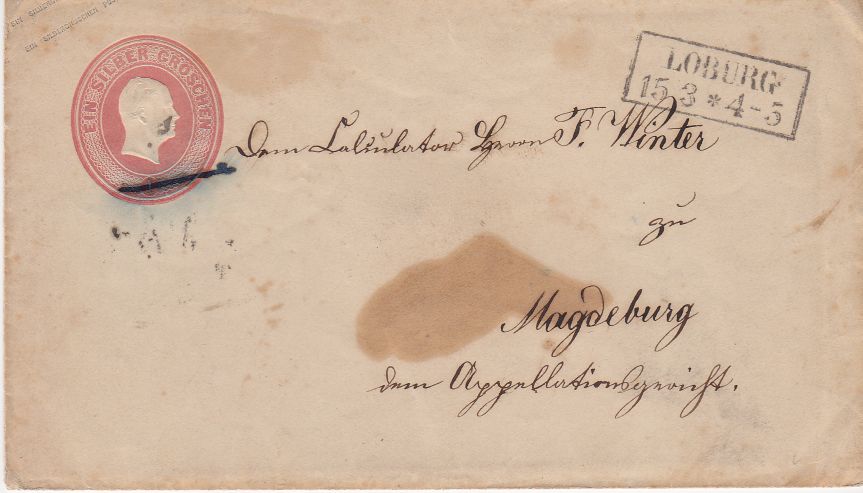 EIN SILBERGROSCHEN POST
EIN SILBER GROSCHEN
LOBURG
15 3 * 4-5
Dem Calculator Herrn F. Winter
zu
Magdeburg
dem Appellationsgericht.